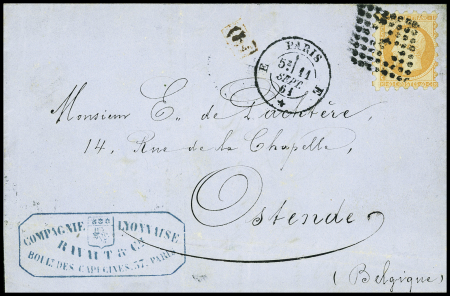 P.D.
PARIS
E 5E 11 E
SEPT.
61
Monsieur E. de
14, Rue de la Chapelle,
Ostende
(Belgique)
COMPAGNIE LYONNAISE
RAVAUT & Cie
BOULd. DES CAPUCINES, 37, PARIS